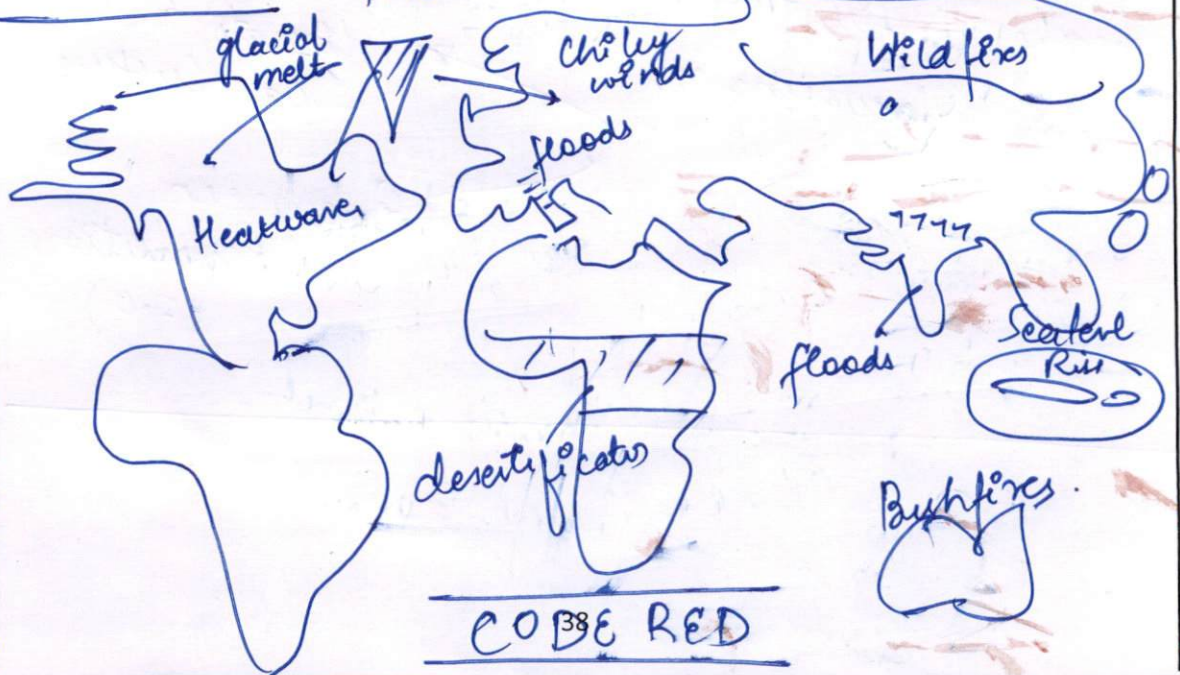 glacial
melt
Chilly
winds
Wildfires
floods
Heatwaves
floods
Sealevel
Rise
desertification
Bushfires.
CODE RED
38